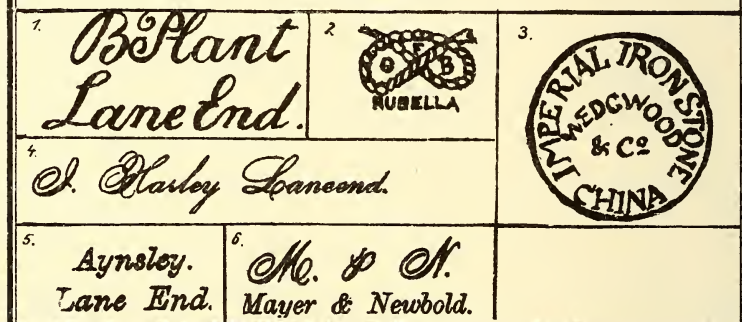 1.
BPlant
Lane End.
2.
G F B
RUBELLA
3.
IMPERIAL IRON STONE
WEDGWOOD
& Co
CHINA
4.
J. Harley Laneend.
5.
Aynsley.
Lane End.
6.
M. & N.
Mayer & Newbold.